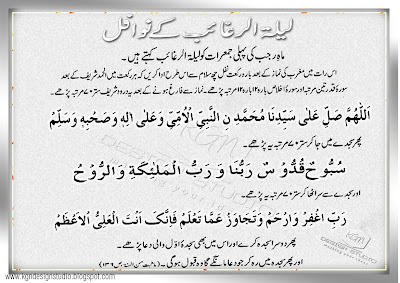 لیلۃ الرغائب کے نوافل
ماہِ رجب کی پہلی جمعرات کو لیلۃ الرغائب کہتے ہیں۔
اس رات میں مغرب کی نماز کے بعد بارہ رکعت نفل چھ سلام سے اس طرح ادا کریں کہ ہر رکعت میں الحمد شریف کے بعد
سورۃ قدر تین مرتبہ اور سورۃ اخلاص بارہ ۱۲ مرتبہ پڑھے۔ نماز سے فارغ ہونے کے بعد یہ درود شریف ستر ۷۰ مرتبہ پڑھے۔
اَللّٰهُمَّ صَلِّ عَلٰى سَيِّدِنَا مُحَمَّدِ نِ النَّبِيِّ الْاُمِّيِّ وَعَلٰى اٰلِهٖ وَصَحْبِهٖ وَسَلِّمْ
پھر سجدے میں جا کر ستر ۷۰ مرتبہ یہ پڑھے۔
سُبُّوْحٌ قُدُّوْسٌ رَبُّنَا وَ رَبُّ الْمَلٰٓئِكَةِ وَالرُّوْحُ
اور سجدے سے سر اٹھا کر ستر ۷۰ مرتبہ پڑھے۔
رَبِّ اغْفِرْ وَارْحَمْ وَتَجَاوَزْ عَمَّا تَعْلَمُ فَاِنَّكَ اَنْتَ الْعَلِيُّ الْاَعْظَمُ
پھر دوسرا سجدہ کرے اور اس میں بھی سجدۂ اوّل والی دعا پڑھے۔
اور پھر سجدہ میں رہ کر جو دعا مانگے گا وہ قبول ہوگی۔ (ماثبت من السنۃ، ص ۱۳۶)
KGN
DESIGN STUDIO
www.kgndesignstudio.blogspot.com